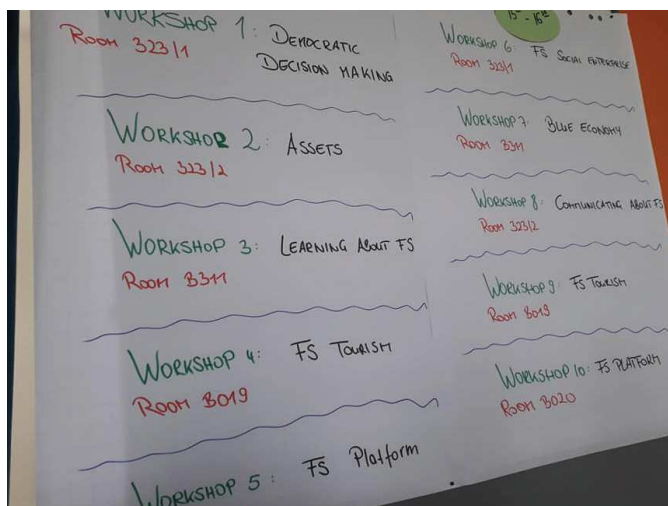 WORKSHOP 1: DEMOCRATIC
DECISION MAKING
ROOM 323/1
WORKSHOP 2: ASSETS
ROOM 323/2
WORKSHOP 3: LEARNING ABOUT FS
ROOM B311
WORKSHOP 4: FS TOURISM
ROOM B019
WORKSHOP 5: FS Platform
WORKSHOP 6: FS SOCIAL ENTERPRISE
ROOM 323/1
WORKSHOP 7: BLUE ECONOMY
ROOM B311
WORKSHOP 8: COMMUNICATING ABOUT FS
ROOM 323/2
WORKSHOP 9: FS TOURISM
ROOM B019
WORKSHOP 10: FS PLATFORM
ROOM B020